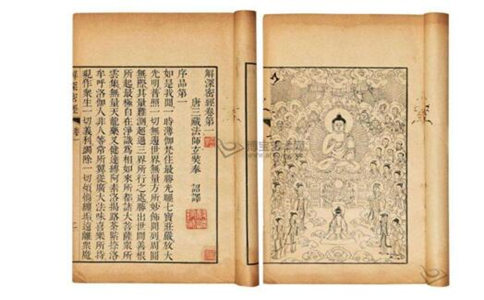 解深密經卷第一
唐三藏法師玄奘奉 詔譯
序品第一
如是我聞一時薄伽梵住最勝光曜七寶莊嚴放大
光明普照一切無邊世界無量方所妙飾間列周圓
無際其量難測超過三界所行之處勝出世間善根
所起最極自在淨識為相如來所都諸大菩薩衆所
雲集無量天龍藥叉健達縛阿素洛揭路荼緊捺洛
牟呼洛伽人非人等常所翼從廣大法味喜樂所持
現作衆生一切義利蠲除一切煩惱纏垢遠離衆魔
解深密經 卷一